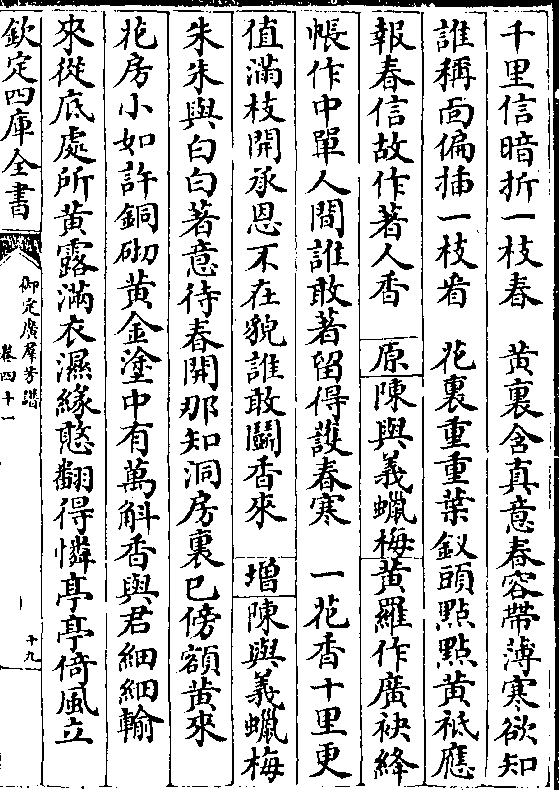 千里信暗折一枝春　黄裏含真意春容帶薄寒欲知
誰稱面偏揷一枝看　花裏重重葉釵頭點點黄祗應
報春信故作著人香　原陳與義蠟梅黄羅作廣袂絳
帳作中單人間誰敢著留得護春寒　一花香十里更
值滿枝開承恩不在貌誰敢鬭香來　増陳與義蠟梅
朱朱與白白著意待春開那知洞房裏已傍額黄來
花房小如許銅砌黄金塗中有萬斛香與君細細輸
來從底處所黄露滿衣濕緣憨翻得憐亭亭倚風立
欽定四庫全書
御定廣羣芳譜
卷四十一
十九